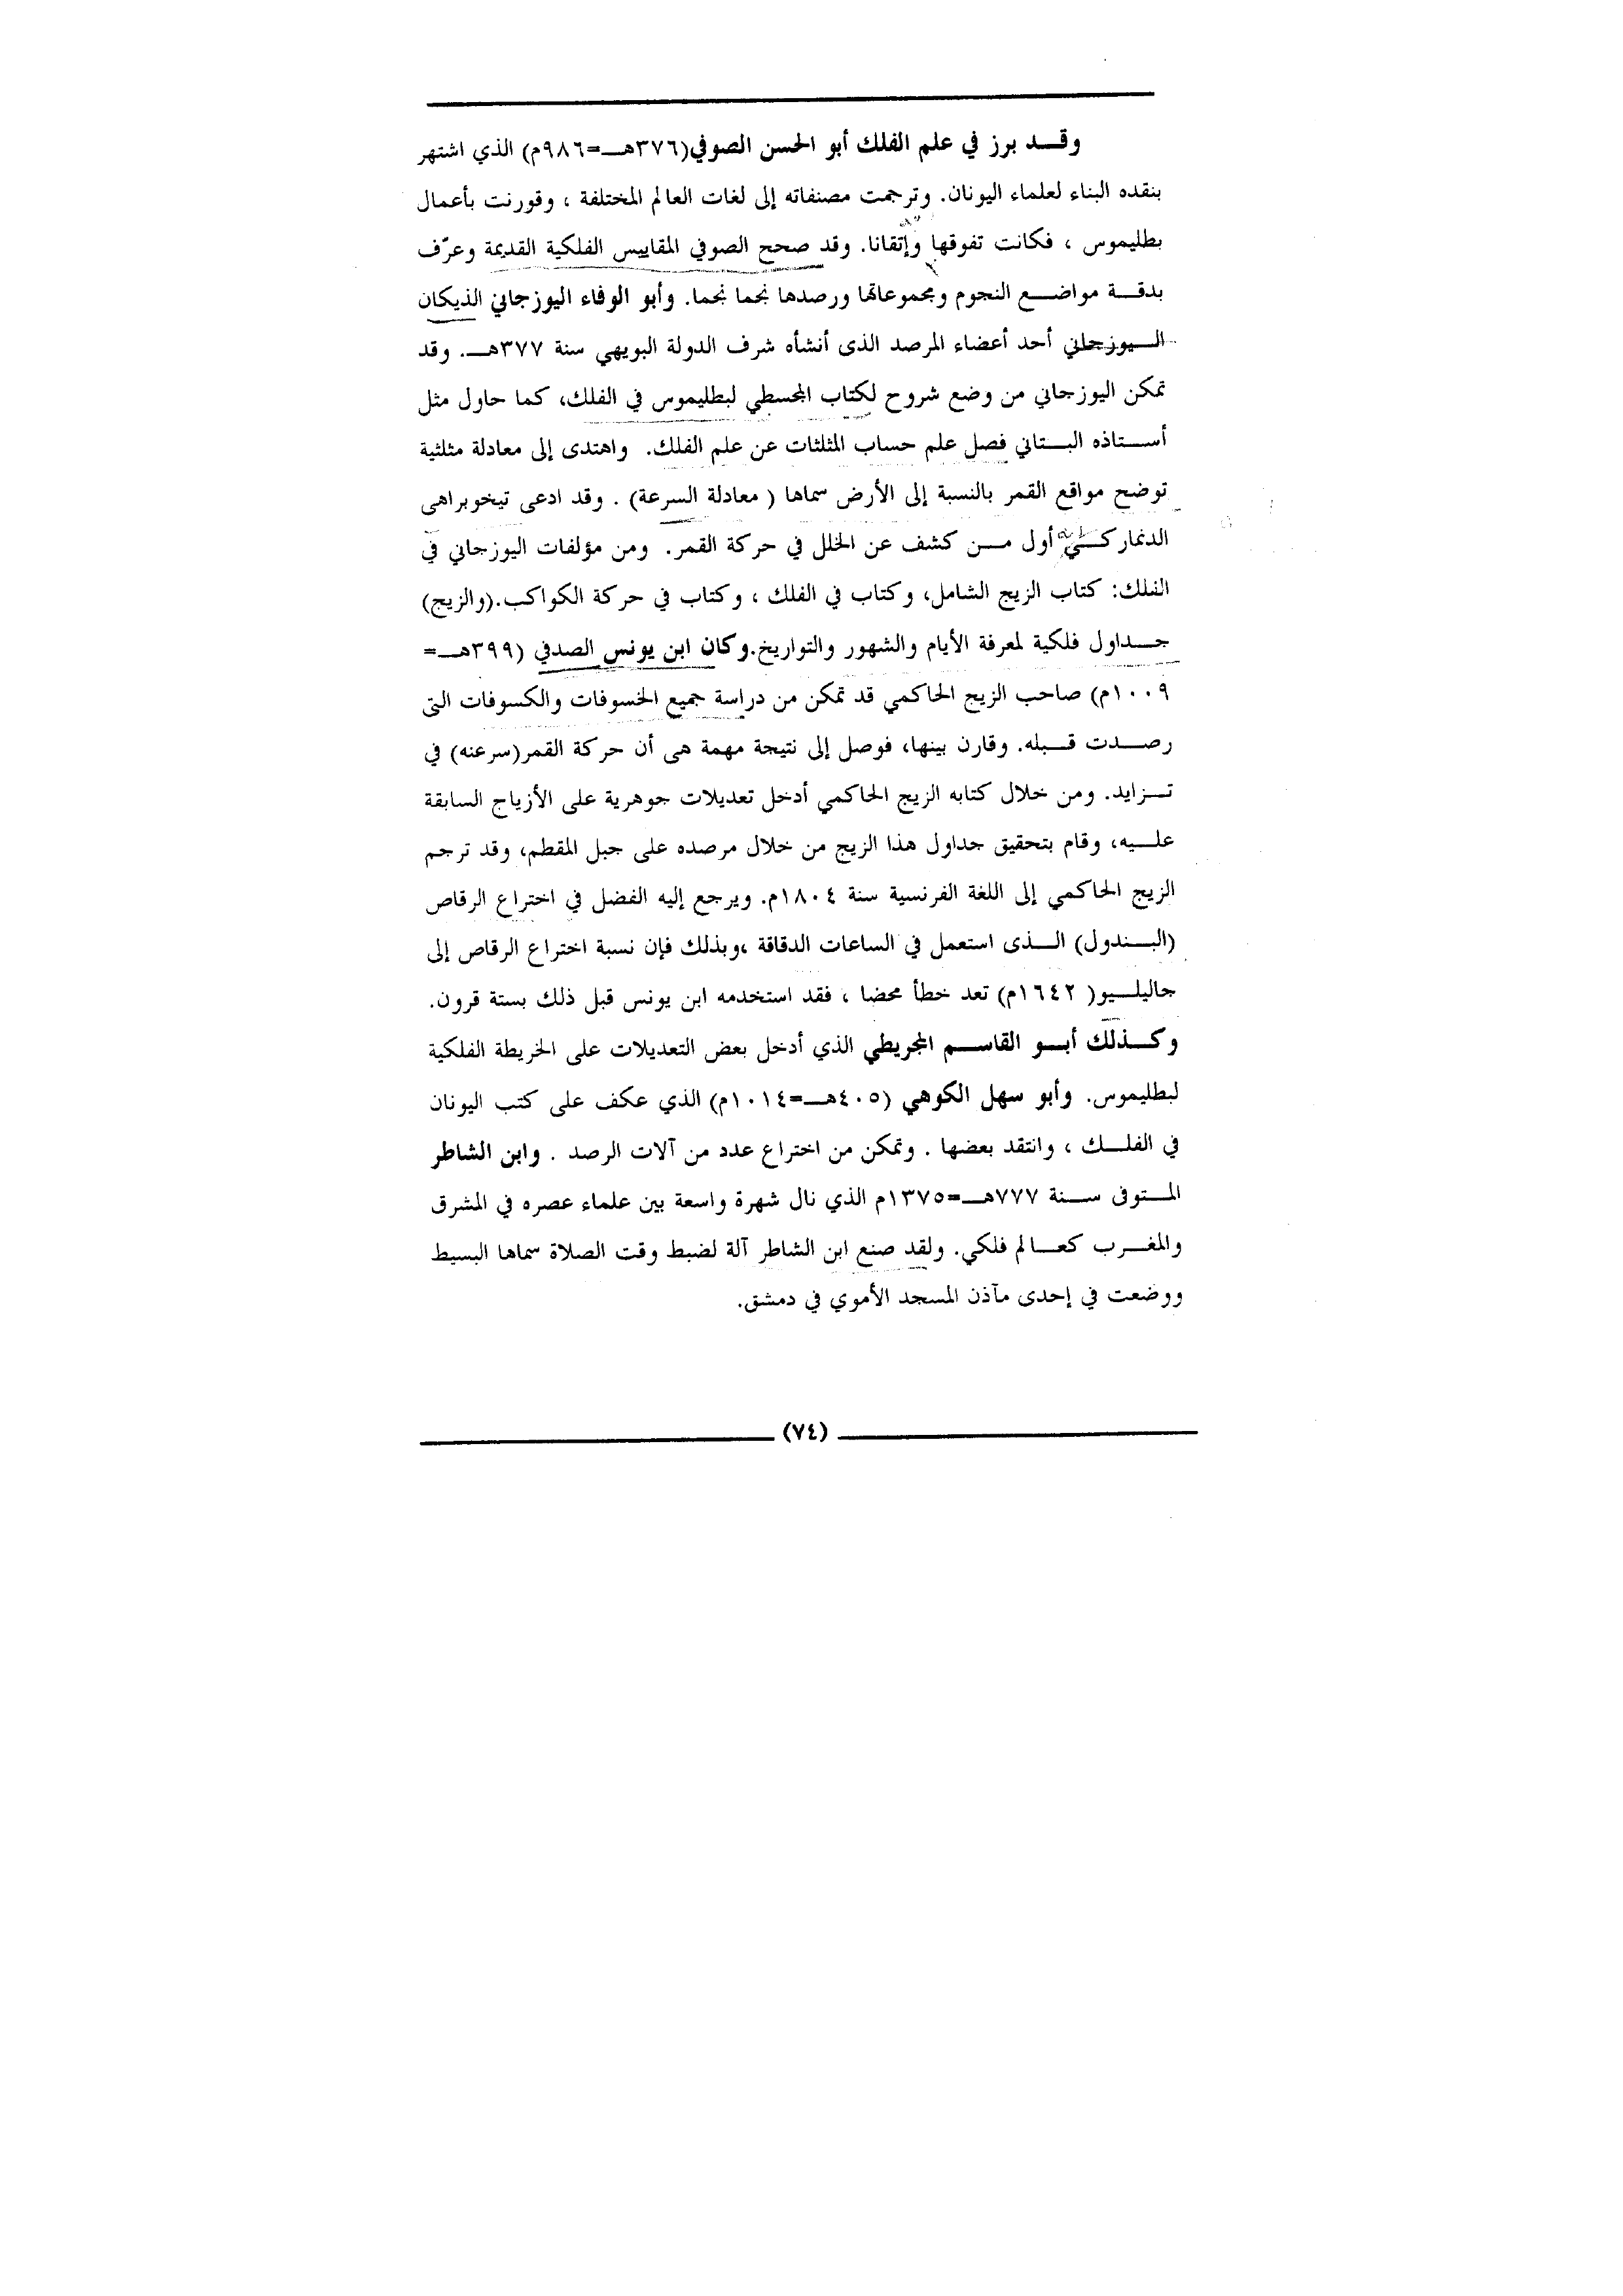 وقد برز في علم الفلك أبو الحسن الصوفي(٣٧٦هـ=٩٨٦م) الذي اشتهر
بنقده البناء لعلماء اليونان. وترجمت مصنفاته إلى لغات العالم المختلفة ، وقورنت بأعمال
بطليموس ، فكانت تفوقها وإتقانا. وقد صحح الصوفي المقاييس الفلكية القديمة وعرّف
بدقة مواضع النجوم ومجموعاتها ورصدها نجما نجما. وأبو الوفاء اليوزجاني الذيكان
اليوزجاني أحد أعضاء المرصد الذى أنشأه شرف الدولة البويهي سنة ٣٧٧هـ. وقد
تمكن اليوزجاني من وضع شروح لكتاب المجسطي لبطليموس في الفلك، كما حاول مثل
أستاذه البتاني فصل علم حساب المثلثات عن علم الفلك. واهتدى إلى معادلة مثلثية
توضح مواقع القمر بالنسبة إلى الأرض سماها ( معادلة السرعة) . وقد ادعى تيخوبراهى
الدنماركي أول من كشف عن الخلل في حركة القمر. ومن مؤلفات اليوزجاني في
الفلك: كتاب الزيج الشامل، وكتاب في الفلك ، وكتاب في حركة الكواكب.(والزيج)
جداول فلكية لمعرفة الأيام والشهور والتواريخ.وكان ابن يونس الصدفي (٣٩٩هـ=
١٠٠٩م) صاحب الزيج الحاكمي قد تمكن من دراسة جميع الخسوفات والكسوفات التى
رصدت قبله. وقارن بينها، فوصل إلى نتيجة مهمة هى أن حركة القمر(سرعنه) في
تزايد. ومن خلال كتابه الزيج الحاكمي أدخل تعديلات جوهرية على الأزياج السابقة
عليه، وقام بتحقيق جداول هذا الزيج من خلال مرصده على جبل المقطم، وقد ترجم
الزيج الحاكمي إلى اللغة الفرنسية سنة ١٨٠٤م. ويرجع إليه الفضل في اختراع الرقاص
(البندول) الذى استعمل في الساعات الدقاقة ،وبذلك فإن نسبة اختراع الرقاص إلى
جاليليو( ١٦٤٢م) تعد خطأ محضا ، فقد استخدمه ابن يونس قبل ذلك بستة قرون.
وكذلك أبو القاسم المجريطي الذي أدخل بعض التعديلات على الخريطة الفلكية
لبطليموس. وأبو سهل الكوهي (٤٠٥هـ=١٠١٤م) الذي عكف على كتب اليونان
في الفلك ، وانتقد بعضها . وتمكن من اختراع عدد من آلات الرصد . وابن الشاطر
المتوفى سنة ٧٧٧هـ=١٣٧٥م الذي نال شهرة واسعة بين علماء عصره في المشرق
والمغرب كعالم فلكي. ولقد صنع ابن الشاطر آلة لضبط وقت الصلاة سماها البسيط
ووضعت في إحدى مآذن المسجد الأموي في دمشق.
(٧٤)